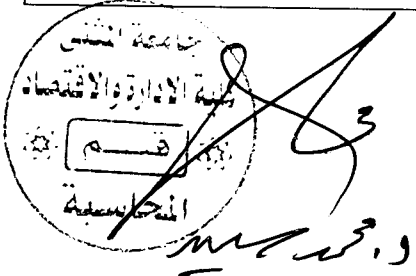 جامعة المثنى
كلية الادارة والاقتصاد
قسم
المحاسبة
د. محمد